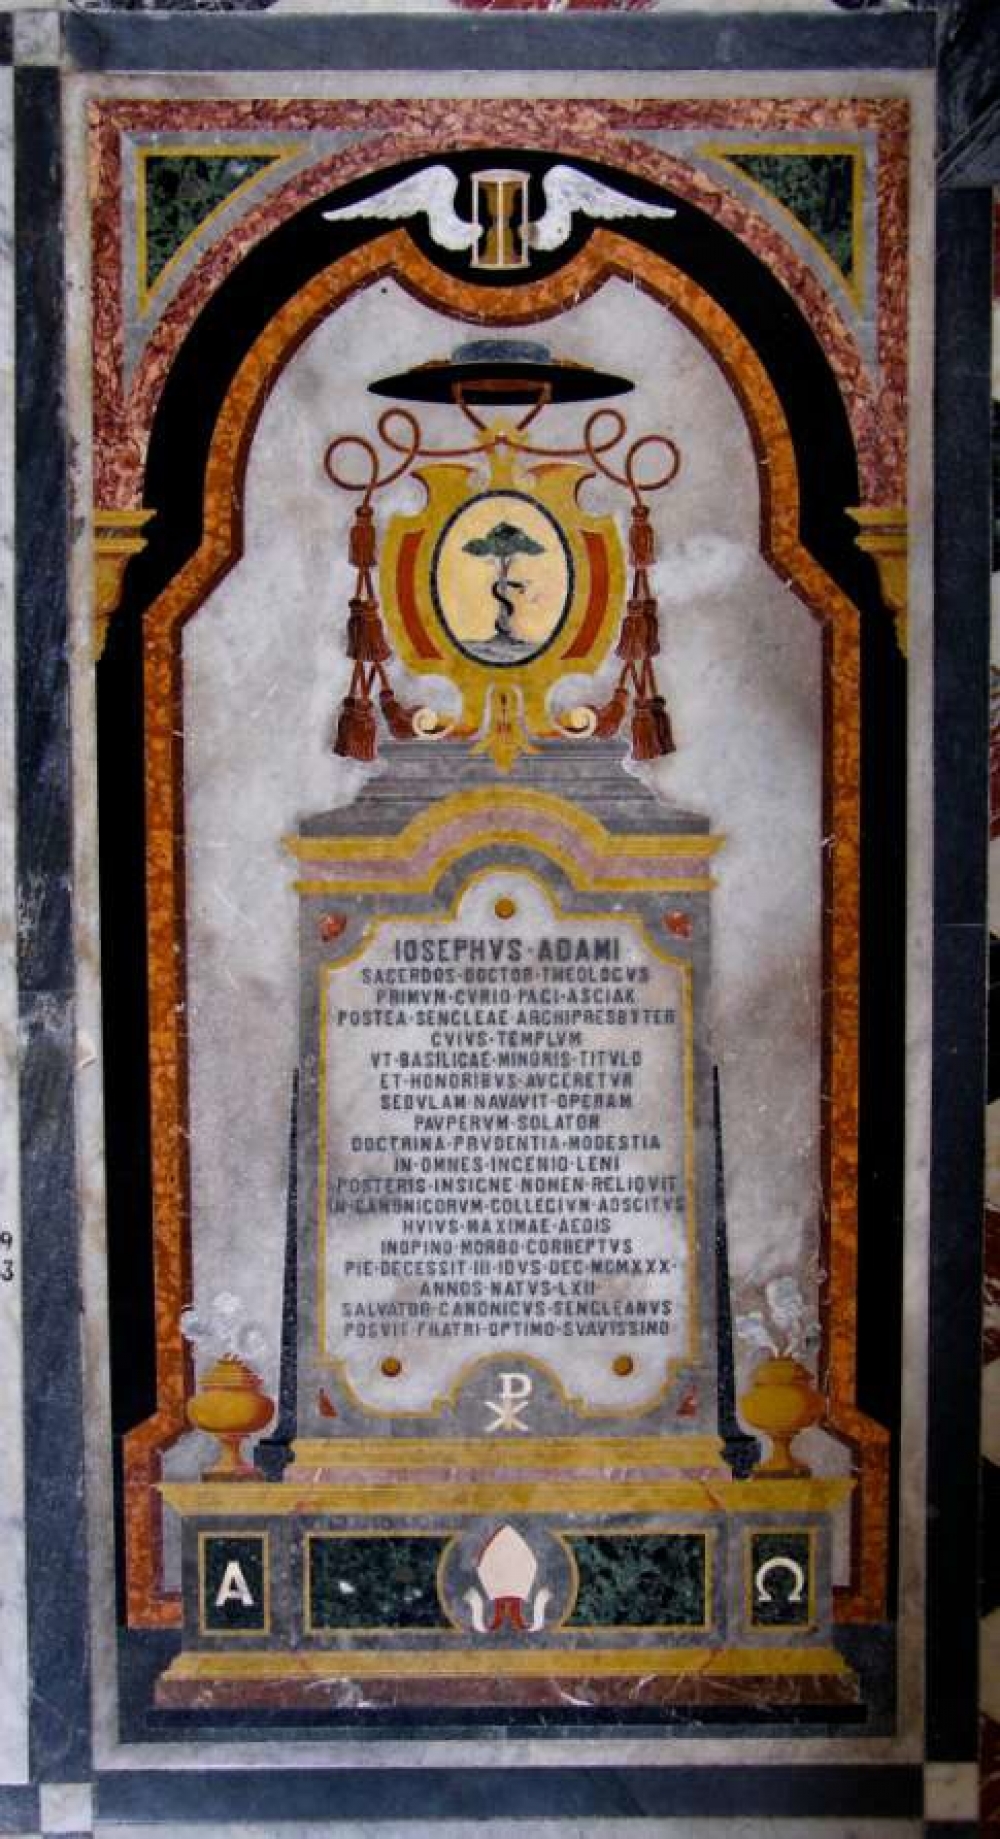 IOSEPHVS·ADAMI
SACERDOS·DOCTOR·THEOLOGVS
PRIMVM·CVRIO·PACI·ASCIAK
POSTEA·SENGLEAE·ARCHIPRESBYTER
CVIVS·TEMPLVM
VT·BASILICAE·MINORIS·TITVLO
ET·HONORIBVS·AVGERETVR
SEDVLAM·NAVAVIT·OPERAM
PAVPERVM·SOLATOR
DOCTRINA·PRVDENTIA·MODESTIA
IN·OMNES·INGENIO·LENI
POSTERIS·INSIGNE·NOMEN·RELIQVIT
IN·CANONICORVM·COLLEGIVM·ADSCITVS
HVIVS·MAXIMAE·AEDIS
INOPINO·MORBO·CORREPTVS
PIE·DECESSIT·III·IDVS·DEC·MCMXXX·
ANNOS·NATVS·LXII
SALVATOR·CANONICVS·SENGLEANVS
POSVIT·FRATRI·OPTIMO·SVAVISSIMO
Α Ω
9
3